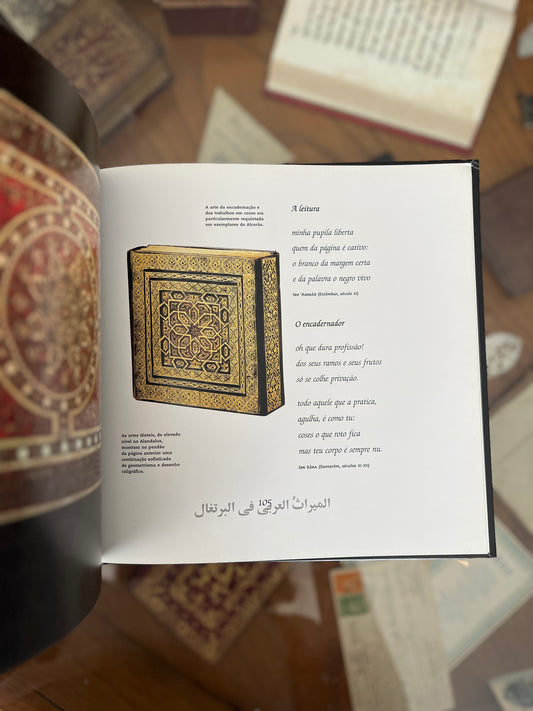 A arte da encadernação e
dos trabalhos em couro era
particularmente requintada
em exemplares do Alcorão.
As artes têxteis, de elevado
nível no Alandalus,
mostram no pendão
da página anterior uma
combinação sofisticada
de geometrismo e desenho
caligráfico.
A leitura
minha pupila liberta
quem da página é cativo:
o branco da margem certa
e da palavra o negro vivo
Ibn ʿAmmār (Estômbar, século XI)
O encadernador
oh que dura profissão!
dos seus ramos e seus frutos
só se colhe privação.
todo aquele que a pratica,
agulha, é como tu:
coses o que roto fica
mas teu corpo é sempre nu.
Ibn Sāra (Santarém, séculos XI-XII)
الميراثُ العربي في البرتغال
105